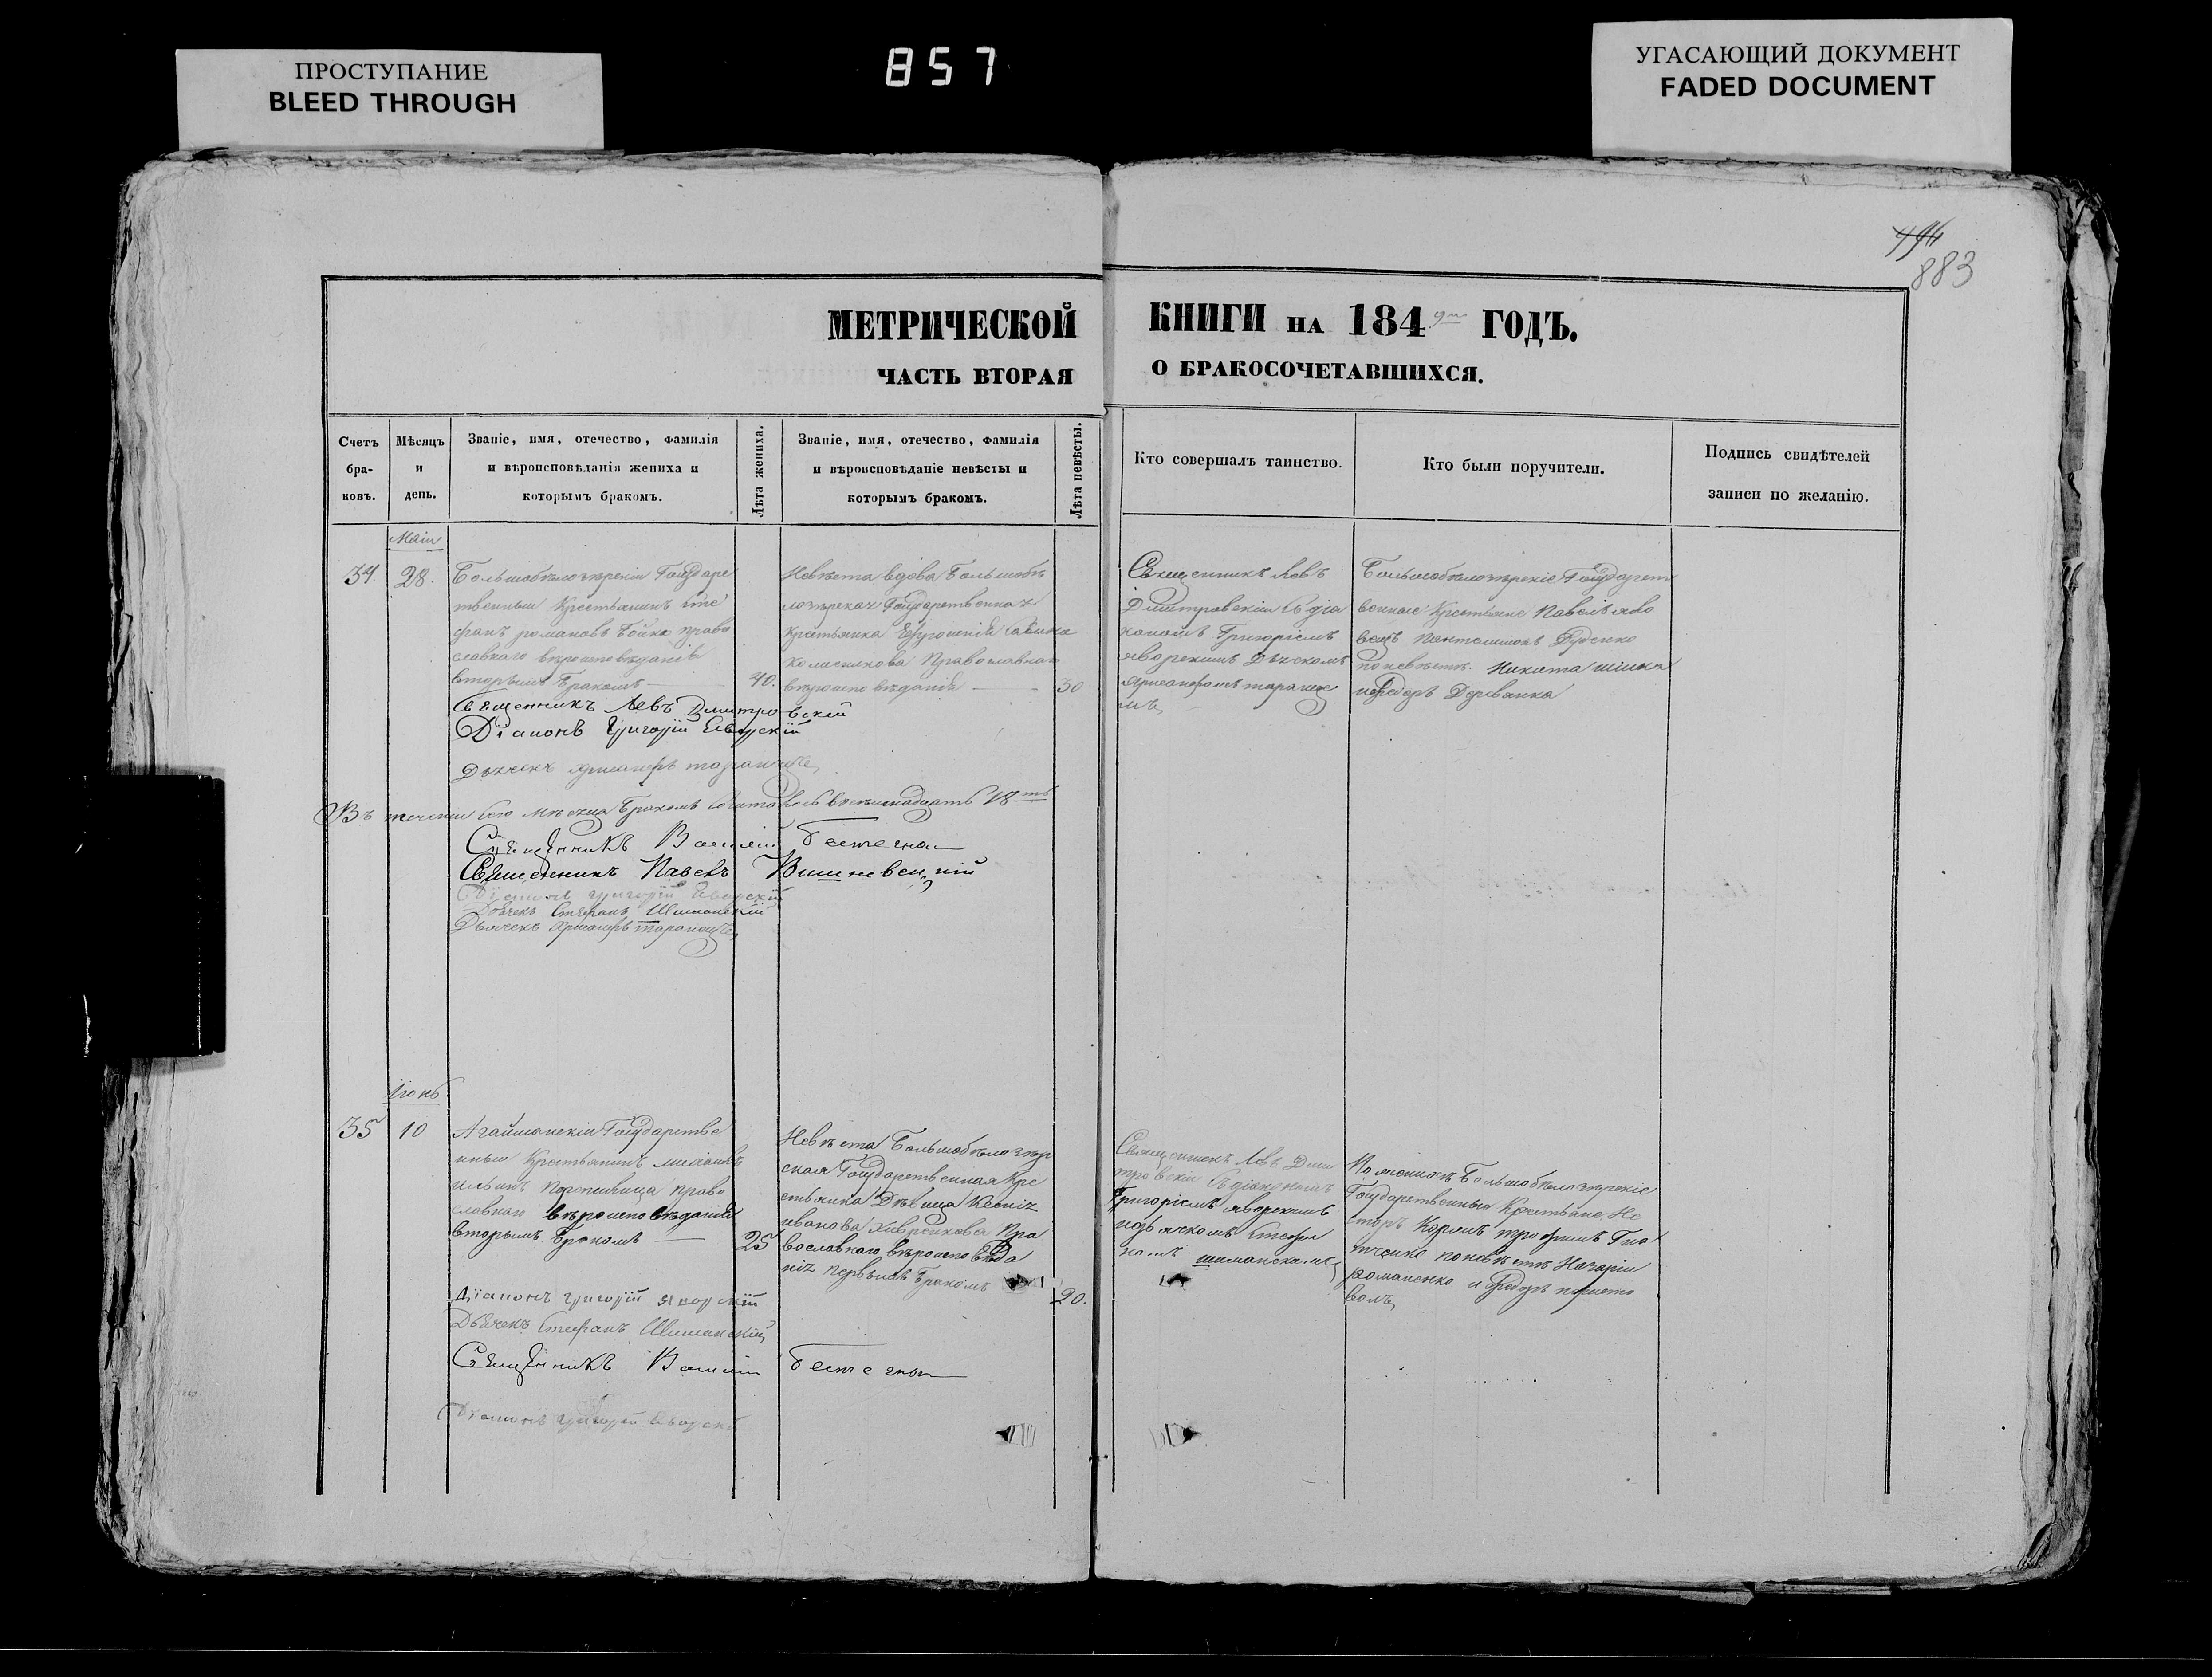 ПРОСТУПАНИЕ
BLEED THROUGH
857
УГАСАЮЩИЙ ДОКУМЕНТ
FADED DOCUMENT
883
МЕТРИЧЕСКОЙ КНИГИ НА 184 9го ГОДЪ.
ЧАСТЬ ВТОРАЯ О БРАКОСОЧЕТАВШИХСЯ.
Счетъ
бра-
ковъ.
Мѣсяцъ
и
день.
Званіе, имя, отечество, фамилія
и вѣроисповѣданія жениха и
которымъ бракомъ.
Лѣта жениха.
Званіе, имя, отечество, фамилія
и вѣроисповѣданіе невѣсты и
которымъ бракомъ.
Лѣта невѣсты.
Кто совершалъ таинство.
Кто были поручители.
Подпись свидѣтелей
записи по желанію.
Маіи
34
28.
Большобѣлозѣрскіи Государс
твенныи Крестьянинъ Сте
фанъ романовъ Бойко право
славнаго вѣроисповѣданія
вторымъ Бракомъ
40.
Невѣста вдова Большобѣ
лозѣрская Государственная
Крестьянка Ефросинія
Колисникова Православнаго
вѣроисповѣданія
30
Священникъ Левъ
Дмитровскіи Съ діа
кономъ Григоріемъ
яворскимъ Дьячкомъ
Большобѣлозѣрскіе Государст
венные Крестьяне Павелъ яко
вецъ Пантелимонъ Руденко
по невѣстѣ. Никита шишка
и Федоръ Деревянка
Священникъ Левъ Дмитровскій
Діаконъ Григорій Яворскій
Въ теченіи сего мѣсяца Бракомъ восемнадцать 18ть
Священникъ Василій
Священникъ Павелъ Вишневецкій
Діаконъ Григорій Яворскій
Дьячекъ Стефанъ Шиманскій
Іюнь
35
10
Агайманскіи Государстве
нныи Крестьянинъ михаилъ
ильинъ Перепилица право
славнаго вѣроисповѣданія
вторымъ Бракомъ
25
Невѣста Большобѣлозѣр
ская Государственная Кре
стьянка Дѣвица Ксенія
иванова Хиврейкова Пра
вославнаго вѣроисповѣда
нія первымъ Бракомъ
20.
Священникъ Левъ Дми
тровскіи Съ діакономъ
Григоріемъ яворскимъ
и дьячкомъ Стефа
номъ шиманскимъ
По женихѣ Большобѣлозѣрскіе
Государственныи Крестьяне Не
сторъ Коржъ трофимъ Гна
тченко по невѣстѣ Назарій
романенко и Федоръ
Діаконъ Григорій Яворскій
Дьячекъ Стефанъ Шиманскій
Священникъ Василій
Діаконъ Григорій Яворскій